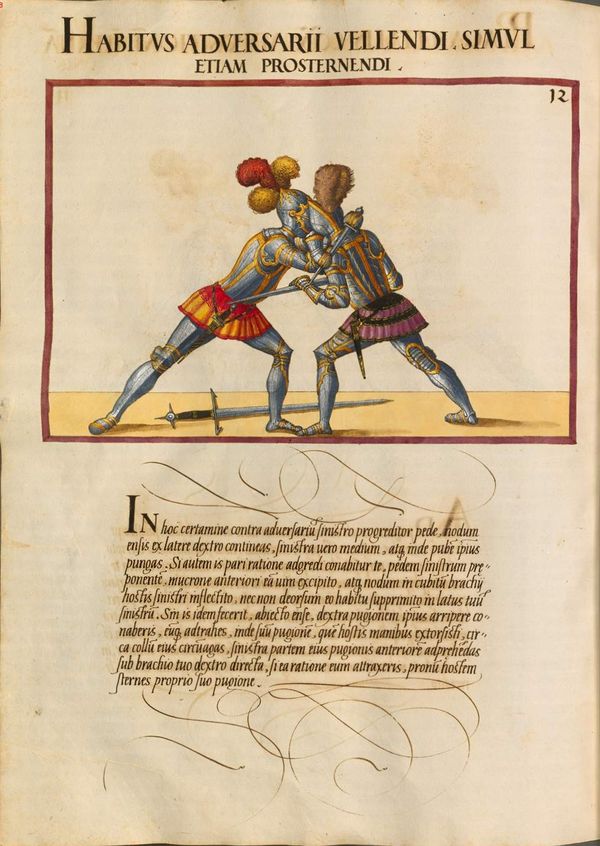 HABITVS ADVERSARII VELLENDI. SIMVL
ETIAM PROSTERNENDI.
12
IN hoc certamine contra adversariū sinistro progreditor pede, nodum
ensis ex latere dextro contineas, sinistra uero medium, atq inde pubē ipius
pungas. Si autem is pari ratione adgredi conabitur te, pedem sinistrum pre-
ponentē, mucrone anteriori eā uim excipito, atq nodum in cubitū brachij
hostis sinistri inflectito, nec non deorsum eo habitu supprimito in latus tuū
sinistrū. Sin is idem fecerit, abiecto ense, dextra pugionem ipius arripere co-
naberis, eūq adtrahes, inde suū pugionē, quē hostis manibus extorsisti, cir-
ca collū eius circūagas, sinistra partem eius pugionis anteriorē adprehēdas
sub brachio tuo dextro directa, si ea ratione eum attraxeris, pronū hostem
sternes proprio suo pugione.